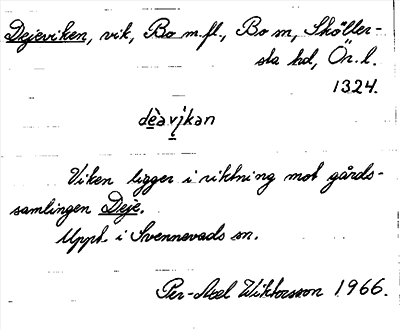 Dejeviken, vik, Bo m.fl., Bo m, Sköller-
sta hd, Ör. l.
1324.
dèavi̯kan
Viken ligger i riktning mot gårds-
samlingen Deje.
Uppt. i Svennevads sn.
Per-Axel Wiktorsson 1966.